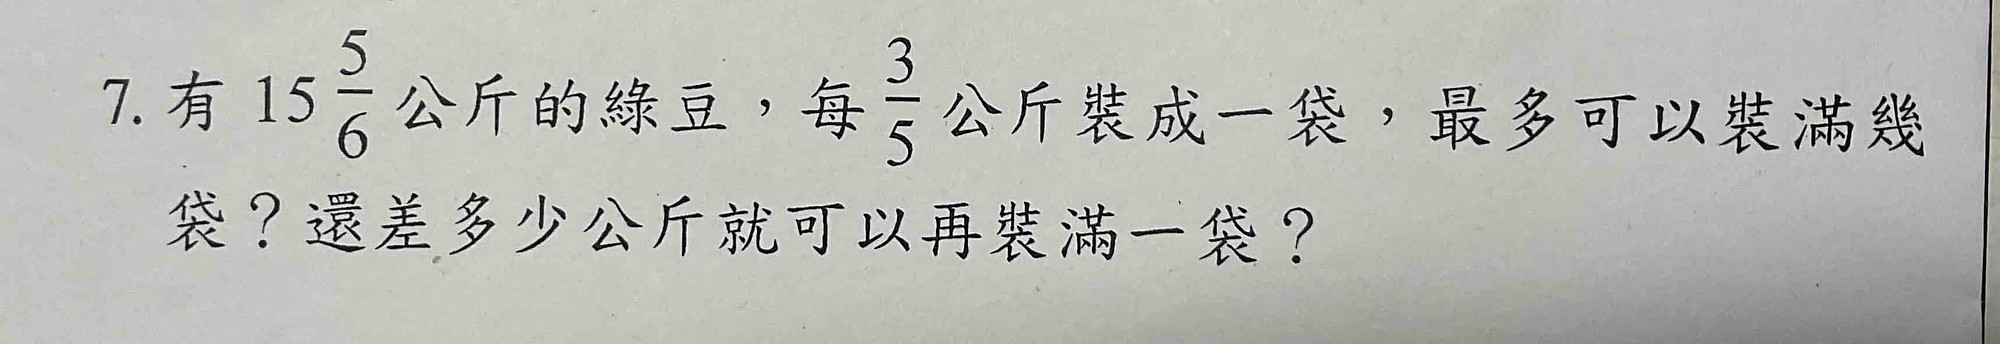 7. 有 15 5/6 公斤的綠豆，每 3/5 公斤裝成一袋，最多可以裝滿幾
袋？還差多少公斤就可以再裝滿一袋？